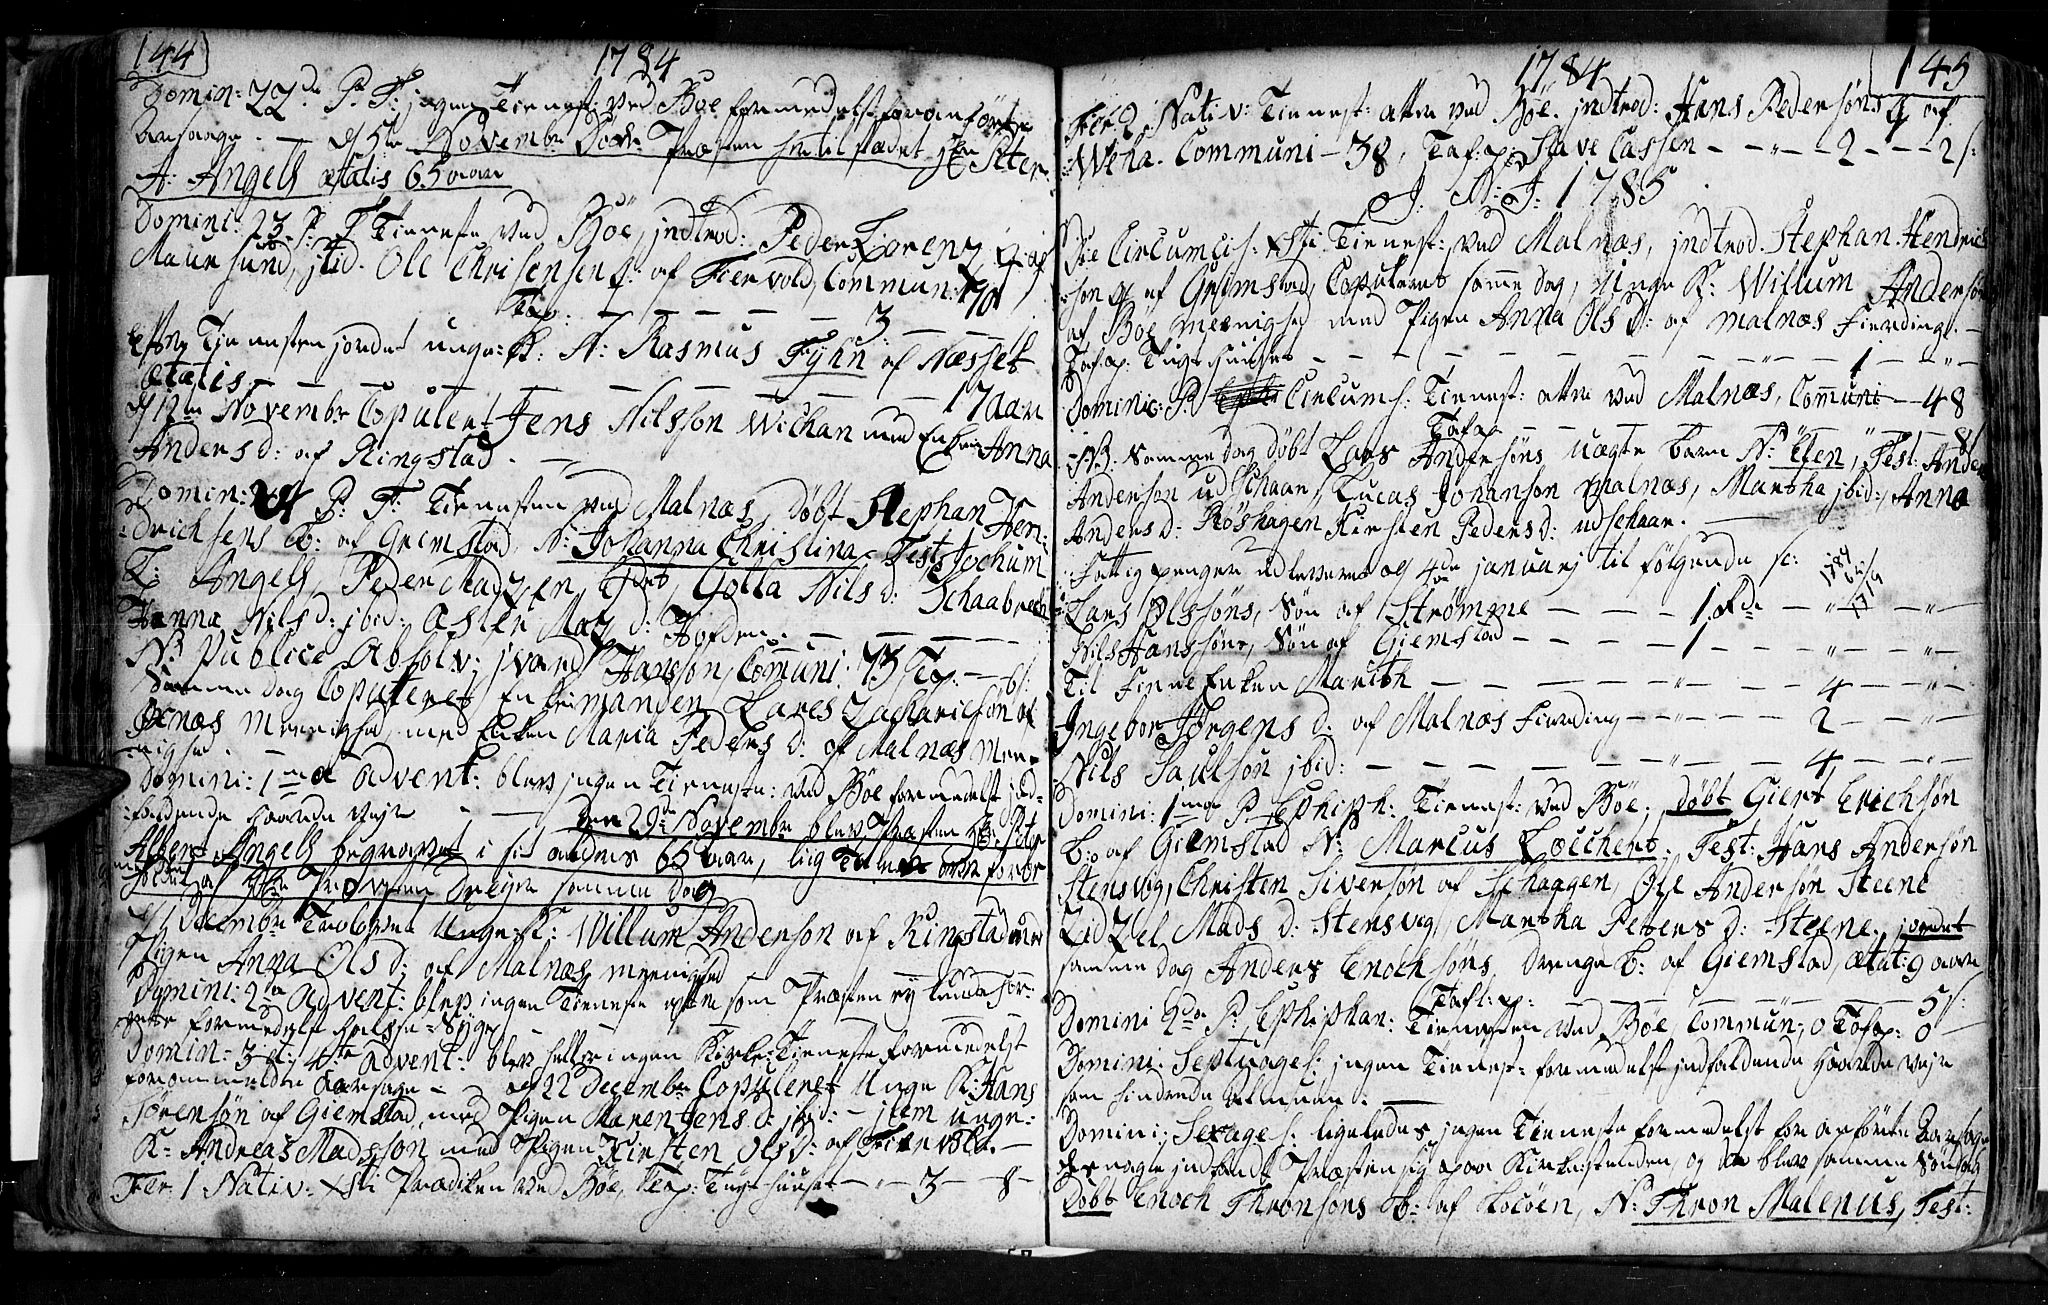 144
1784
Domin: 22de P. T: ingen Tienest: ved Böe formedelst foranförte
Aarsage. — d 5te Novembr Döde Præsten her til stædet Hr Peter
A: Angell ætatis 65 aar
Domini: 23. P: T Tieneste ved Böe, jndtrod: Peder Lorenz Q: af
Maursund, jbid. Ole Chrisensens Q: af Fiervold, Commun: 170
Tap: — — — — — 3 — — ß
efter Tienesten jordet unge K: N: Rasmus Fyhn af Næsset
ætatis — — — — — — — — 17 aar
d 12te Novembr Copuleret Jens Nilsson Wichan med Enken Anna
Anders d: af Ringstad. —
Domin: 24 P: T: Tienesten ved Malnæs, Döbt Stephan Hen:
:drichsens B: af Gremstad, N: Johanna Christina. Test: Jochum
T: Angell, Peder Madzen, Eidet, Golla Nils d: Schaabreche
Hanna Nils d: jbid: Aster Maz d: Hofden. — — — —
N: Publice Absolv: jvard Hansson, Communi: 73 Tap. — 6ß:
Samme dag Copuleret Enkemanden Lares Zachariesön af
Öxnæs Meenighed, med Enken Maria Peders d: af Malnæs Mee=
nighed. —
Domini: 1ma Advent: blev jngen Tieneste: ved Böe formedelst ind-
faldende haarde Vejr — — Den 29de Novembr blev Præsten Hr: Peter
Albert Angell begravet i sit alders 65 aar, liig Talen blev forret
holdet af Hr Provsten Dreyer samme Dag
d 1 Decembr Trolovet Unge K: Willum Anderson af Ringstad med
Pigen Anna Ols d: af Malnæs meenighed
Domini: 2da Advent: blev ingen Tieneste efter som Præsten ey kunde for:
rette formedelst halsse=Syge —
Domin: 3 et: 4ta Advent: blev heller ingen Kirke=Tieneste formedelst
forommelden Aarsage — d 22 Decembr Copuleret Unge K: Hans
Sörensön af Giemstad, med Pigen Maren Jens d: jbid: — jtem unge:
K: Andreas Madsson med Pigen Kirsten Ols d: af Fiervold. —
Fer: 1 Nativ: Xsti Prædiken ved Böe, Tap: Tugt huuset — „ — 3 — 8 —
1784
145
Fer 2 Nativ: Tienest: atter ved Böe. jndtrod: Hans Pedersöns Q af
Weha. Communi — 38, Taf: p: Slave Cassen — — „ — 2 — — 2ß:
J. N: J: 1785.
Die Circumcis: Xsti Tienest: ved Malnæs, jndtrod. Stephan. Hendrich
:söns Q af Grimstad, Copuleret samme dag, Unge K: Willum Andersön
af Böe Meenighed med Pigen Anna Ols d: af Malnæs Fierding. —
Taf: p: Tugthuuset — — — — — — — — „ — 1 — „ —
Dominic: P: Circums: Tienest: atter ved Malnæs, Communi — 48
Tafp — — — — — „ — „ — 8ß
NB: Samme dag döbt Lars Andersöns uægte barn N: Elen, Test: Anders
Andersön Udschaar, Lucas Johansön Malnæs, Martha jbid:, Anna
Anders d: Röshagen Kirsten Peders d: udschaar. —
Fattig penger udleveret og 4de januarj til fölgende sc: 1784
Lars Olssöns, Sön af Strömme — — — 1 Rd — „ — „ —
Nils Hanssöns, Sön af Giemstad — — — — 1 — „ — „ —
Til Finne Enken Marith — — — — — „ — 4 — „ —
Ingebor Jörgens d: af Malnæs Fierding — — — „ — 2 — „ —
Nils Paulsön jbid: — — — — — — „ — 4 — „ —
Domini: 1ma P. Epiph: Tienest: ved Böe: döbt Giert Erichsön
b: af Giemstad N: Marcus Loechert. Test: Hans Andersön
Stensvog, Christen Siversön af Schaggen, Ole Andersön Steene
Zidzel Mads d: Stensvog, Martha Peters d: Steene. jordet
samme dag Anders Enochsöns, drenge b: af Giemstad, ætat: 9 aar
Tafl: p: — — — — — 5ß:
Domini 2da P: Ephiphan: Tienesten ved Böe, Commun: 0 Tafp: 0
Domini: Septuages: jngen Tienest: formedelst jndfaldende haarde Vejr
som hindrede Almuen. —
Domini: Sexages: ligeledes jngen Tieneste formedelst for anförte Aarsage
desuagte jndfandt Præsten sig paa Kirkestæden, og der blev samme Söndag
Döbt Enoch Thronsöns b: af Scoöen, N: Thron Malenus, Test: